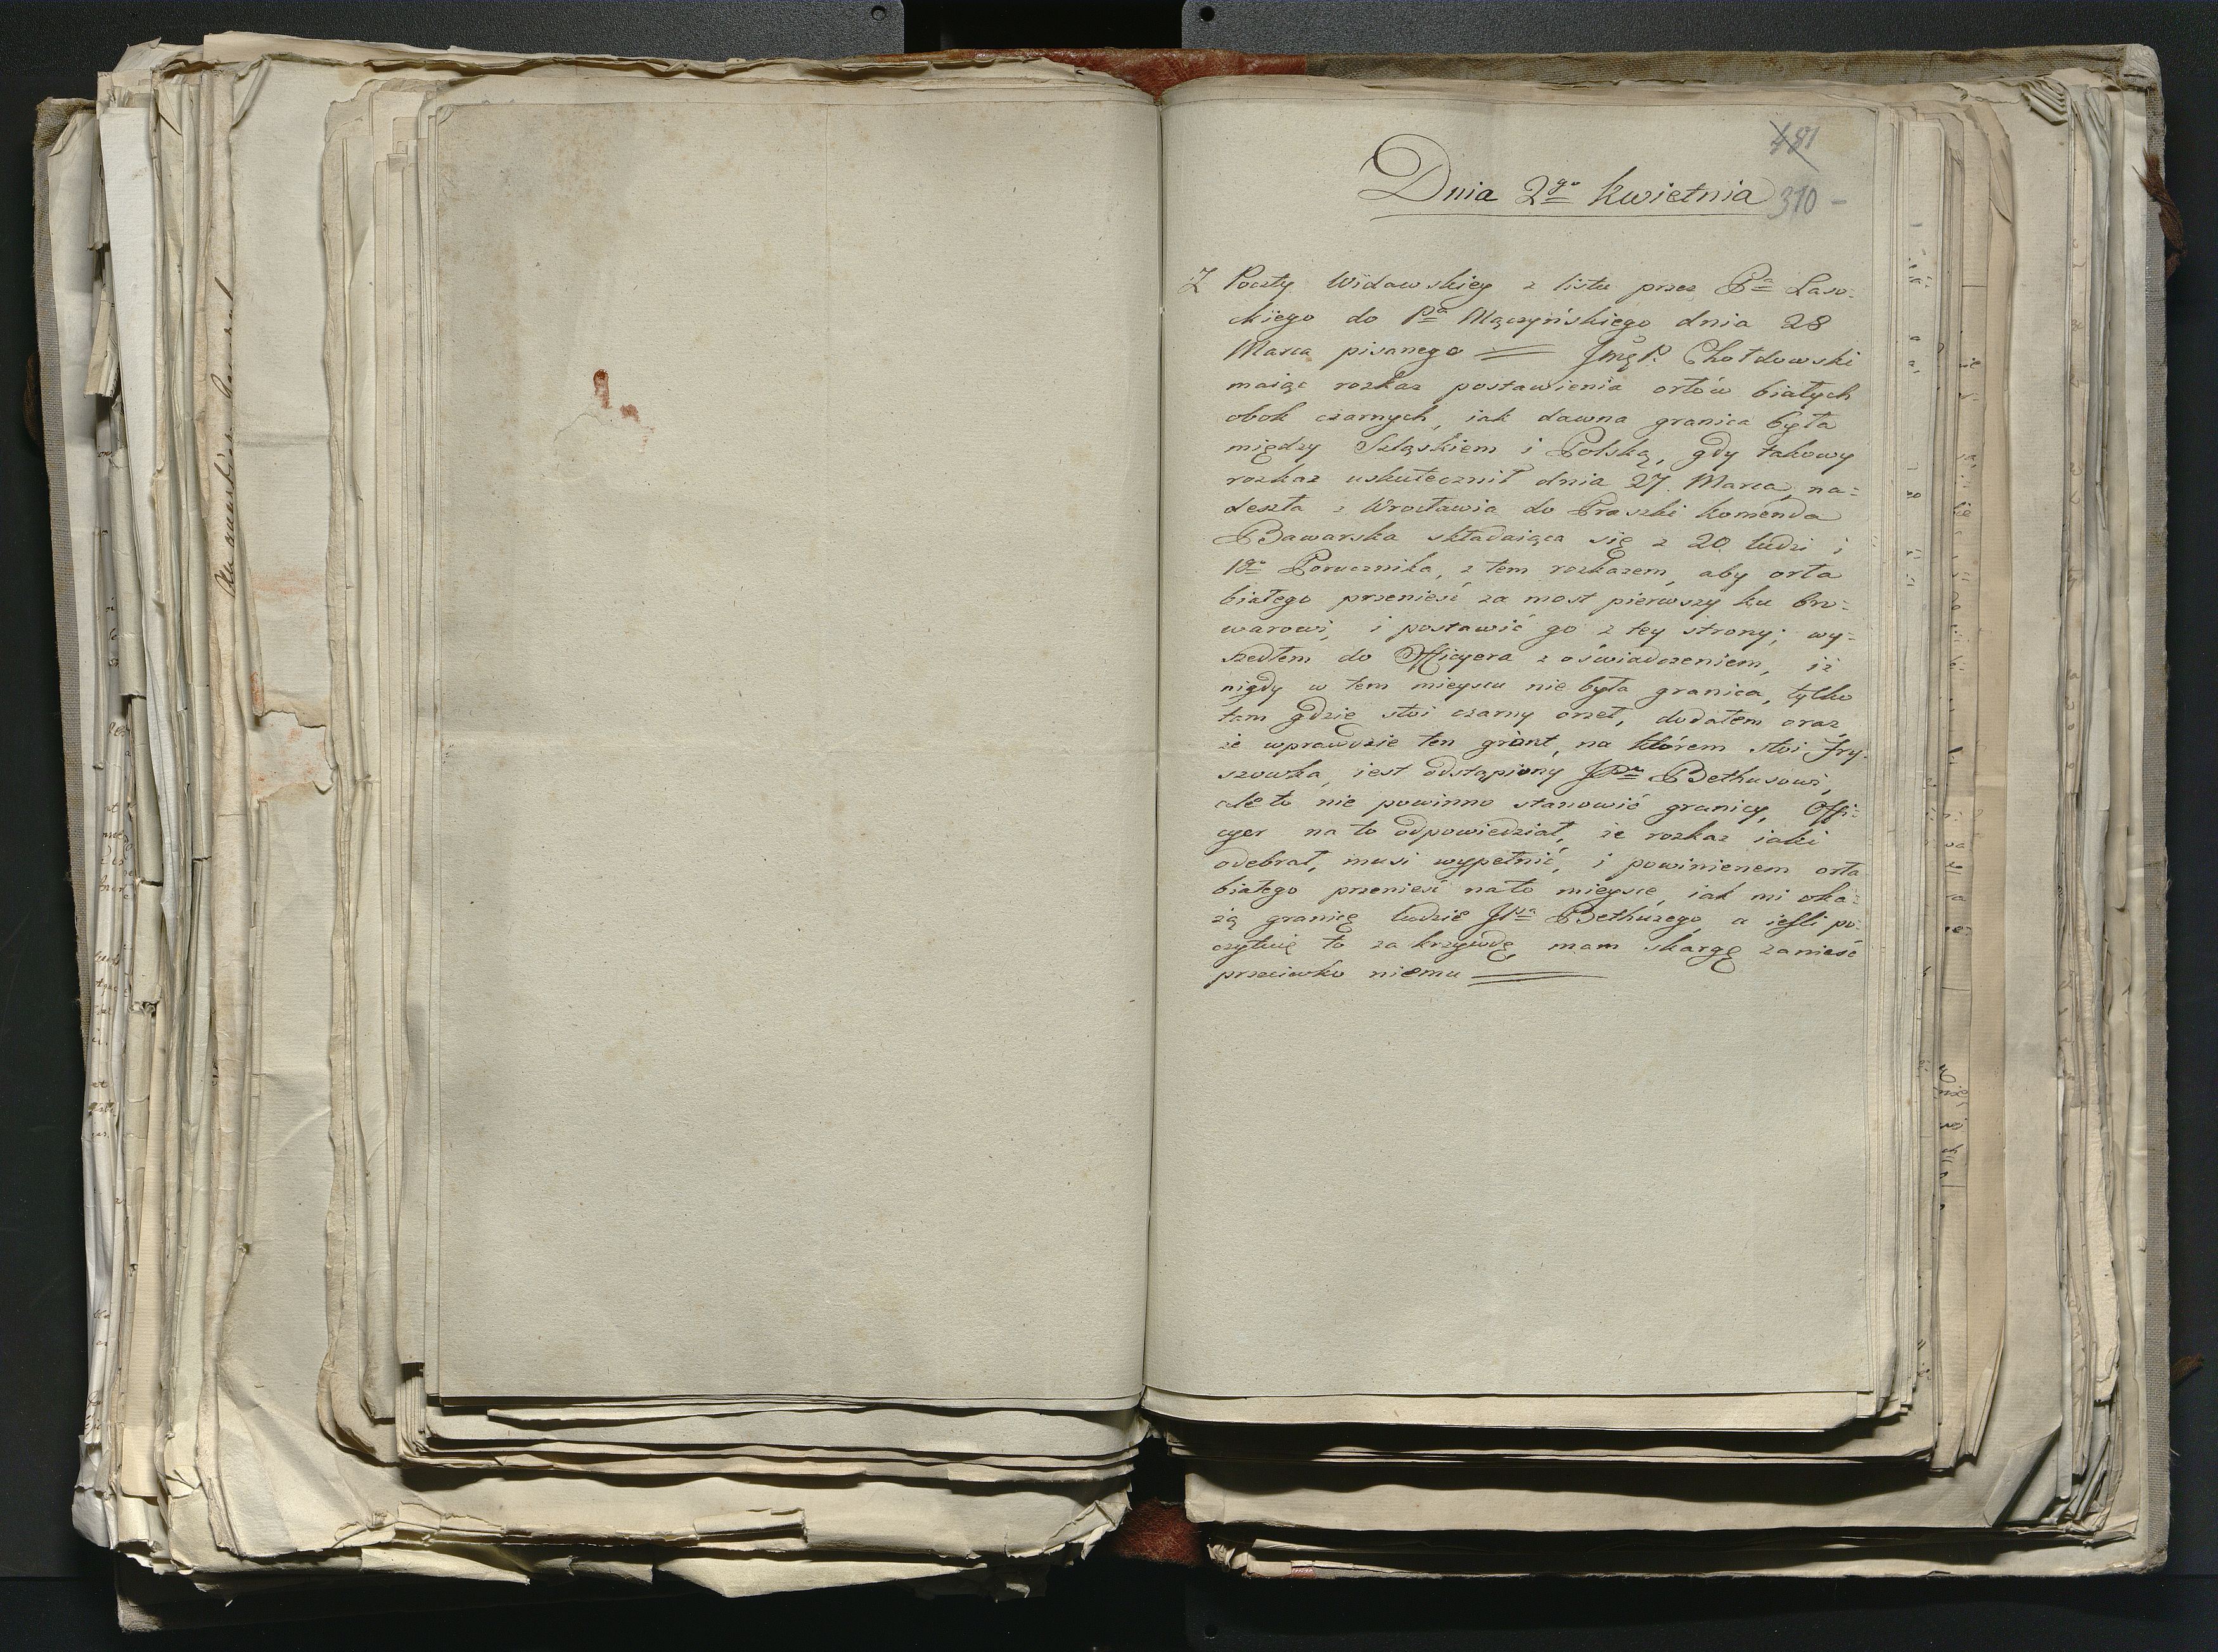 481
Dnia 2go kwietnia 310 -
Z Poczty Widawskiey z listu przez Pa Laso-
ckiego do Pa Mączyńskiego dnia 28
Marca pisanego = JmćP. Chołdowski
maiąc rozkaz postawienia orłów białych
obok czarnych, iak dawna granica była
między Szląskiem i Polską, gdy takowy
rozkaz uskutecznił dnia 27. Marca, na=
deszła z Wrocławia do Praszki komenda
Bawarska składaiąca się z 20 ludzi i
1go Porucznika, z tem rozkazem, aby orła
białego przenieść za most pierwszy ku bro=
warowi, i postawić go z tey strony; wy=
szedłem do Officyera z oświadczeniem, iż
nigdy w tem mieyscu nie była granica, tylko
tam gdzie stoi czarny orzeł, dodałem oraz,
że wprawdzie ten grunt, na którem stoi Fry-
szowka, iest odstąpiony JPu Bethusowi,
ale to nie powinno stanowić granicy, Offi=
cyer na to odpowiedział, że rozkaz iaki
odebrał, musi wypełnić, i powinienem orła
białego przenieść na to mieysce, iak mi oka=
żą granicę ludzie JPa Bethuzego, a ieśli po-
czytuię to za krzywdę, mam skargę zanieść
przeciwko niemu =